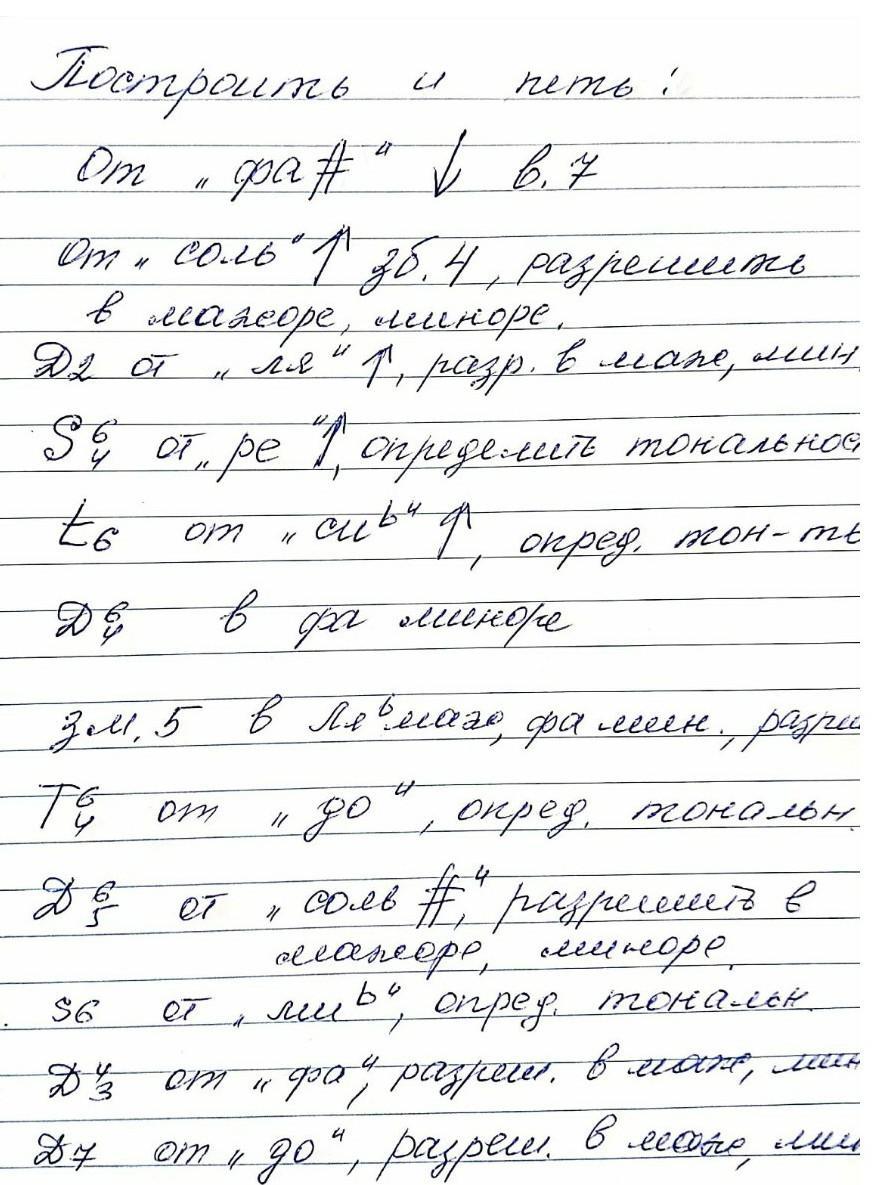 Построить и петь:
От „фа#“ ↓ в.7
от „соль“ ↑ зб.4, разрешить
в мажоре, миноре.
Д2 от „ля“ ↑, разр. в маж, мин.
S6/4 от „ре“ ↑, определить тональнос
t6 от „сиb“ ↑, опред. тон-ть
Д6/4 в фа миноре
зм.5 в Ляb маж, фа мин., разре
T6/4 от „до“, опред. тональн.
Д6/5 от „соль#“, разрешить в
мажоре, миноре.
s6 от „миb“, опред. тональн.
Д4/3 от „фа“, разреш. в маж, мин
Д7 от „до“, разреш. в маж, мин